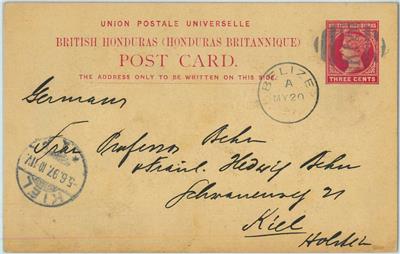 UNION POSTALE UNIVERSELLE
BRITISH HONDURAS (HONDURAS BRITANNIQUE)
POST CARD.
THE ADDRESS ONLY TO BE WRITTEN ON THIS SIDE.
BRITISH HONDURAS
THREE CENTS
BELIZE
A
MY 20
Germany
Frau Professor Behn
Fräul. Hedwig Behn
Schwanenweg 21
Kiel
Holstein
KIEL
5.6.97.10-11V